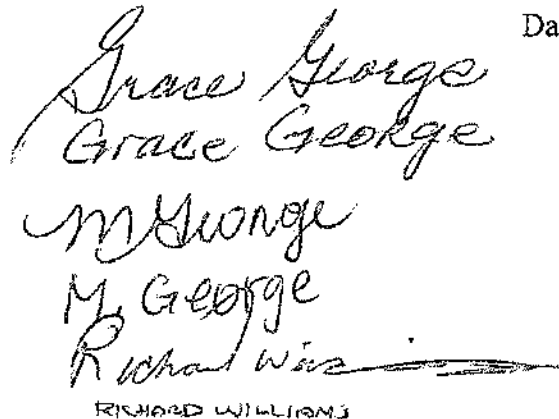 Da
Grace George
Grace George
M George
M. George
Richard
RICHARD WILLIAMS